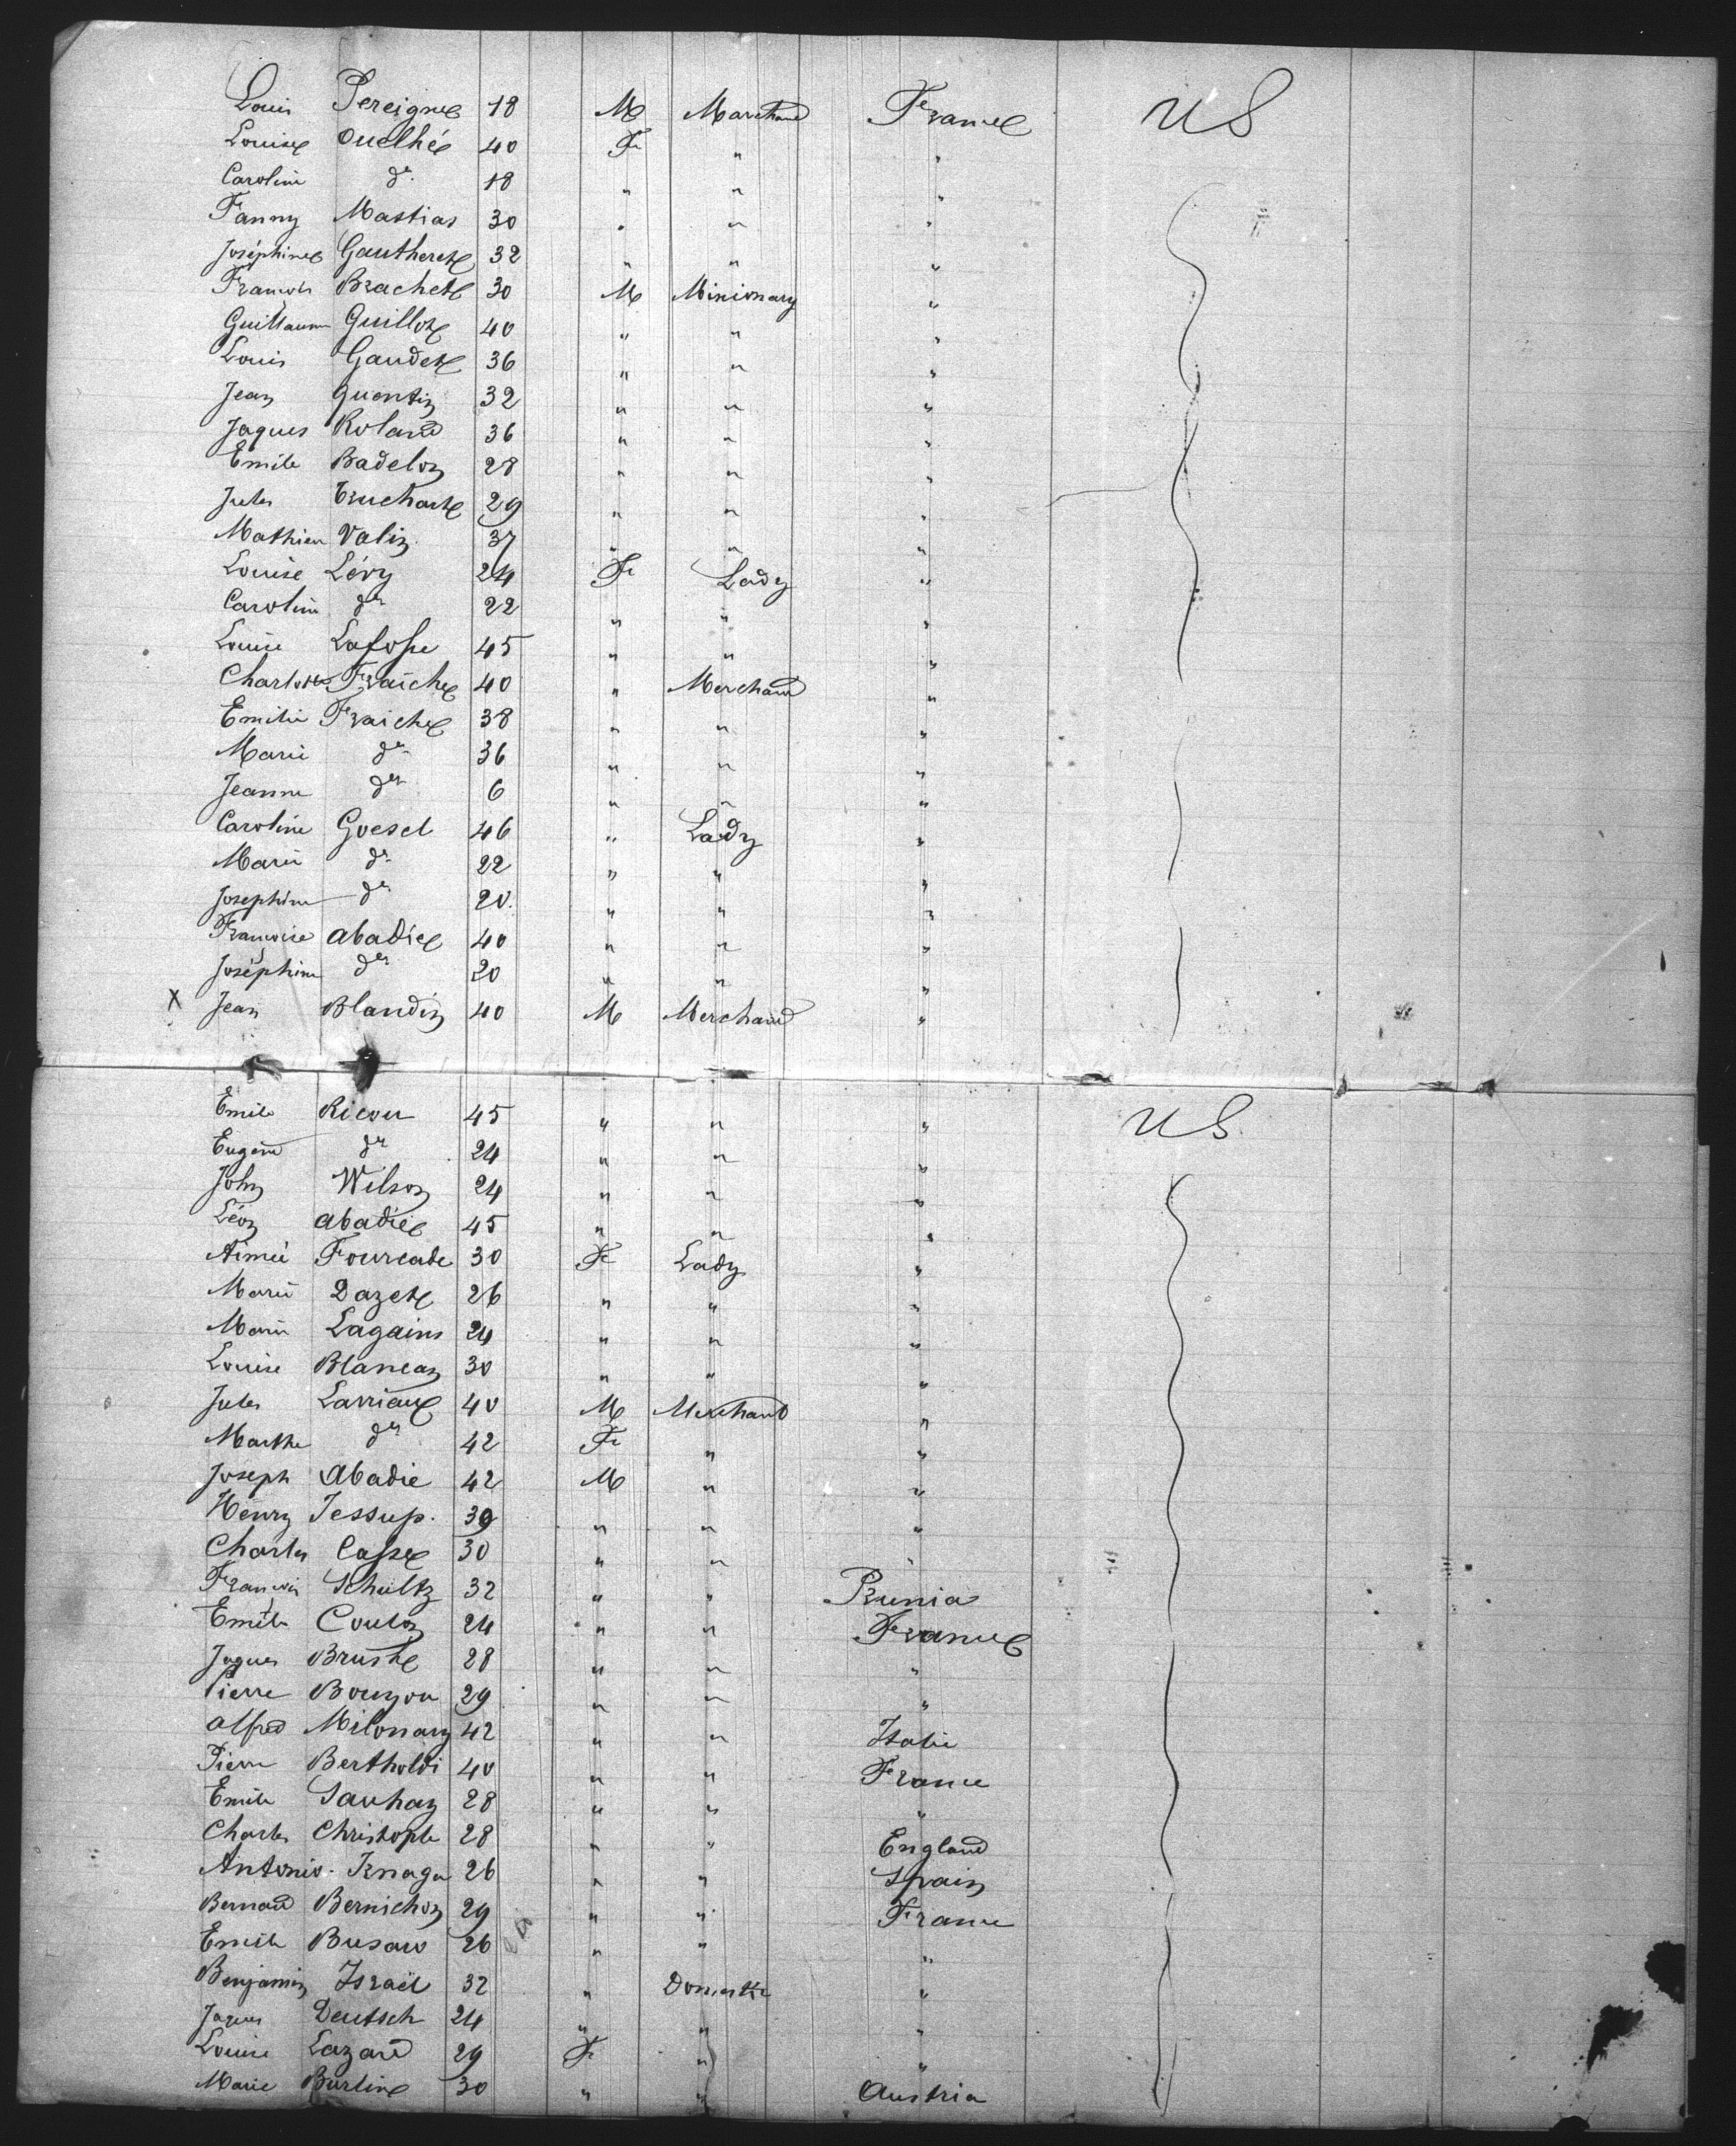 Louis Pereigne 18 M Marchand France U S
Louise Ouelhé 40 F " "
Caroline do 18 " " "
Fanny Mastias 30 " " "
Joséphine Gautheret 32 " " "
François Brachet 30 M Missionary "
Guillaume Guillot 40 " " "
Louis Gaudet 36 " " "
Jean Quentin 32 " " "
Jaques Roland 36 " " "
Emile Badelon 28 " " "
Jules Truchart 29 " " "
Mathieu Valin 37 " " "
Louise Lévy 24 F Lady "
Caroline do 22 " " "
Louise Lafosse 45 " " "
Charlotte Fraîche 40 " Merchand "
Emilie Fraiche 38 " " "
Marie do 36 " " "
Jeanne do 6 " " "
Caroline Goesel 46 " Lady "
Marie do 22 " " "
Josephine do 20 " " "
Françoise Abadie 40 " " "
Joséphine do 20 " " "
X Jean Blandin 40 M Merchand "
Emile Ricou 45 " " " U S
Eugène do 24 " " "
John Wilson 24 " " "
Léon Abadie 45 " " "
Aimée Fourcade 30 F Lady "
Marie Dazet 26 " " "
Marie Lagains 24 " " "
Louise Blancan 30 " " "
Jules Larriaux 40 M Merchand "
Marthe do 42 F " "
Joseph Abadie 42 M " "
Henry Jessup. 39 " " "
Charles Casse 30 " " "
François Schultz 32 " " Prussia
Emile Coulon 24 " " France
Jaques Brust 28 " " "
Pierre Bouzon 29 " " "
Alfred Milonary 42 " " Italie
Pierre Bertholdi 40 " " France
Emile Sauhan 28 " " "
Charles Christophe 28 " " England
Antonio 26 " " Spain
Bernard Bernichon 29 " " France
Emile Busaw 26 " " "
Benjamin Israël 32 " Domestic "
Jaques Deutsch 24 " " "
Louise Lazard 29 F " "
Marie Burline 30 " " Austria